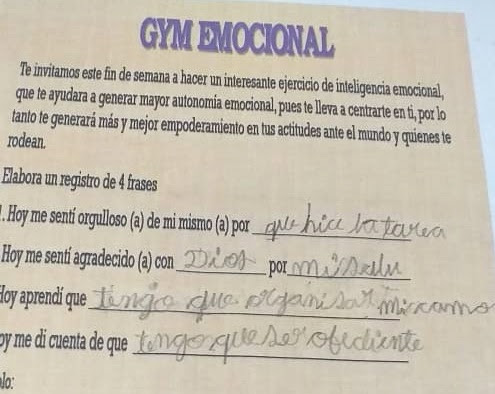 GYM EMOCIONAL
Te invitamos este fin de semana a hacer un interesante ejercicio de inteligencia emocional,
que te ayudara a generar mayor autonomia emocional, pues te lleva a centrarte en ti, por lo
tanto te generará más y mejor empoderamiento en tus actitudes ante el mundo y quienes te
rodean.
Elabora un registro de 4 frases
. Hoy me sentí orgulloso (a) de mi mismo (a) por que hice la tarea
Hoy me sentí agradecido (a) con Dios por mi salu
Hoy aprendí que tengo que organisar mi
oy me di cuenta de que tengo que ser obediente
lo: